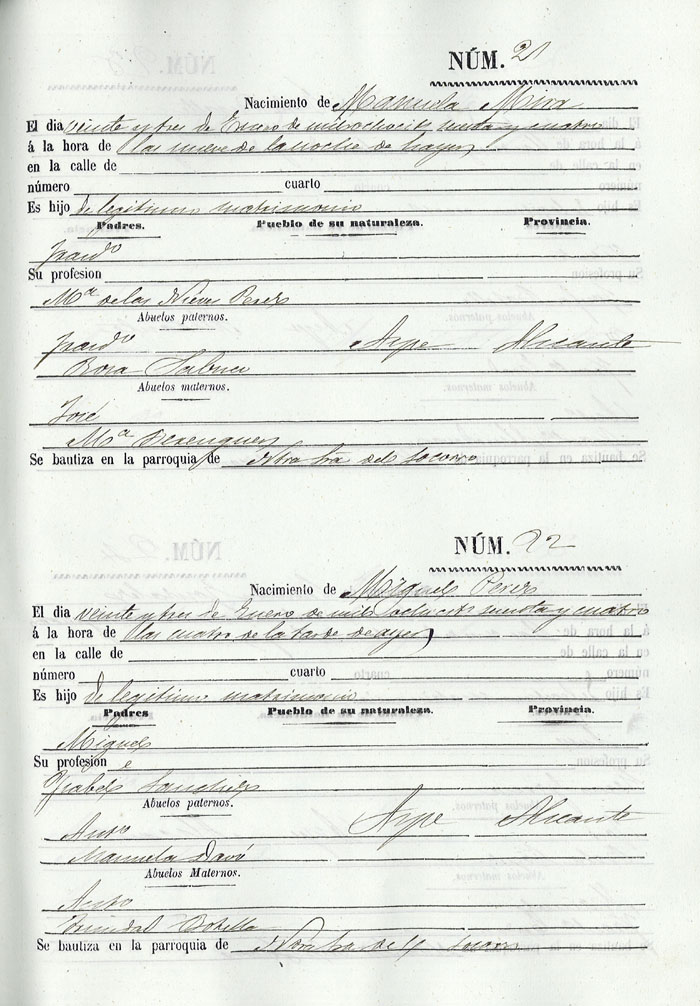 NÚM. 21
Nacimiento de Manuela Mira
El dia veinte y tres de Enero de mil ochocitos senta y cuatro
á la hora de las nueve de la noche de hayer
en la calle de
número cuarto
Es hijo de legitimo matrimonio
Padres. Pueblo de su naturaleza. Provincia.
Su profesion
Mª de las Nieves Perez
Abuelos paternos.
Aspe Alicante
Rosa
Abuelos maternos.
José
Mª Berenguer
Se bautiza en la parroquia de Ntra Sra del Socorro
NÚM. 22
Nacimiento de Miguel Perez
El dia veinte y tres de Enero de mil ochocits senta y cuatro
á la hora de las cuatro de la tarde de ayer
en la calle de
número cuarto
Es hijo de legitimo matrimonio
Padres Pueblo de su naturaleza. Provincia.
Miguel
Su profesion é
Ysabel Sanchez
Abuelos paternos.
Antº Aspe Alicante
Manuela Davó
Abuelos Maternos.
Antº
Trinidad Botella
Se bautiza en la parroquia de Ntra Sra del Socorro